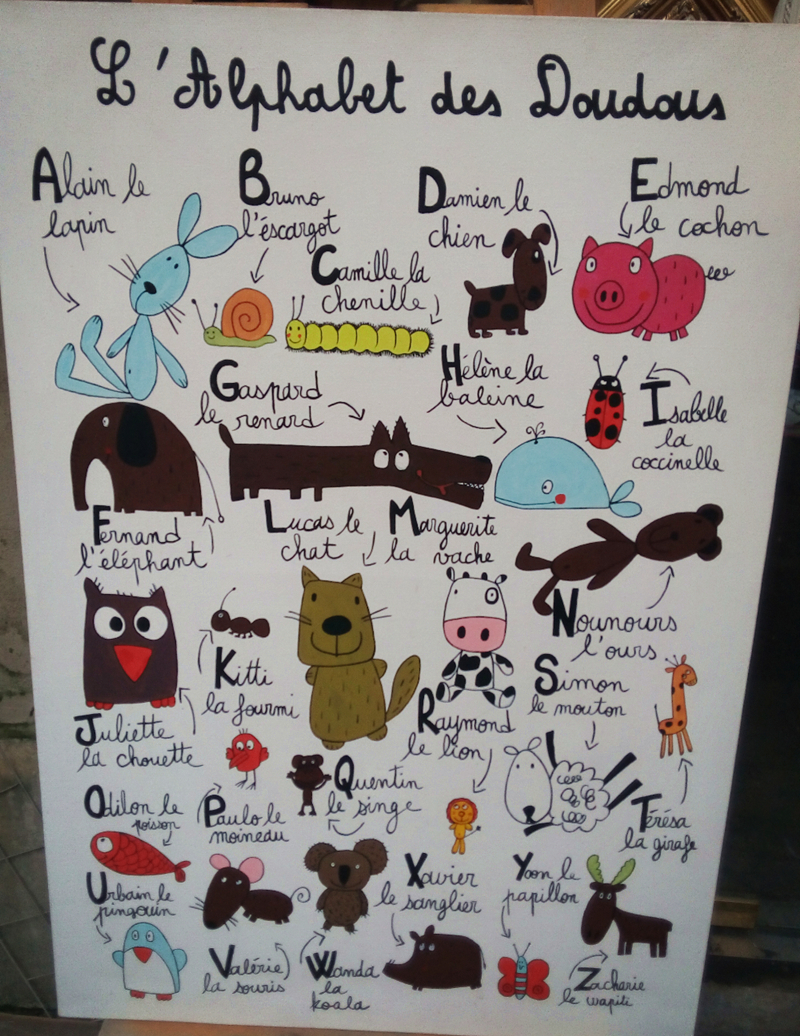 L'Alphabet des Doudous
Alain le
lapin
Bruno
l'éscargot
Camille la
chenille
Damien le
chien
Edmond
le cochon
Fernand
l'éléphant
Gaspard
le renard
Hélène la
baleine
Isabelle
la
coccinelle
Juliette
la chouette
Kitti
la fourmi
Lucas le
chat
Marguerite
la vache
Nounours
l'ours
Odilon le
poisson
Paulo le
moineau
Quentin
le singe
Raymond
le lion
Simon
le mouton
Térésa
la girafe
Urbain le
pingouin
Valérie
la souris
Wanda
la
koala
Xavier
le sanglier
Yvon le
papillon
Zacharie
le wapiti